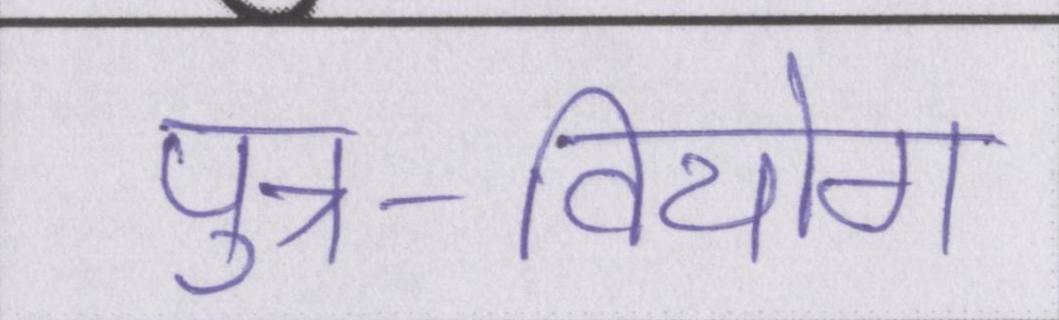 पुत्र-वियोग